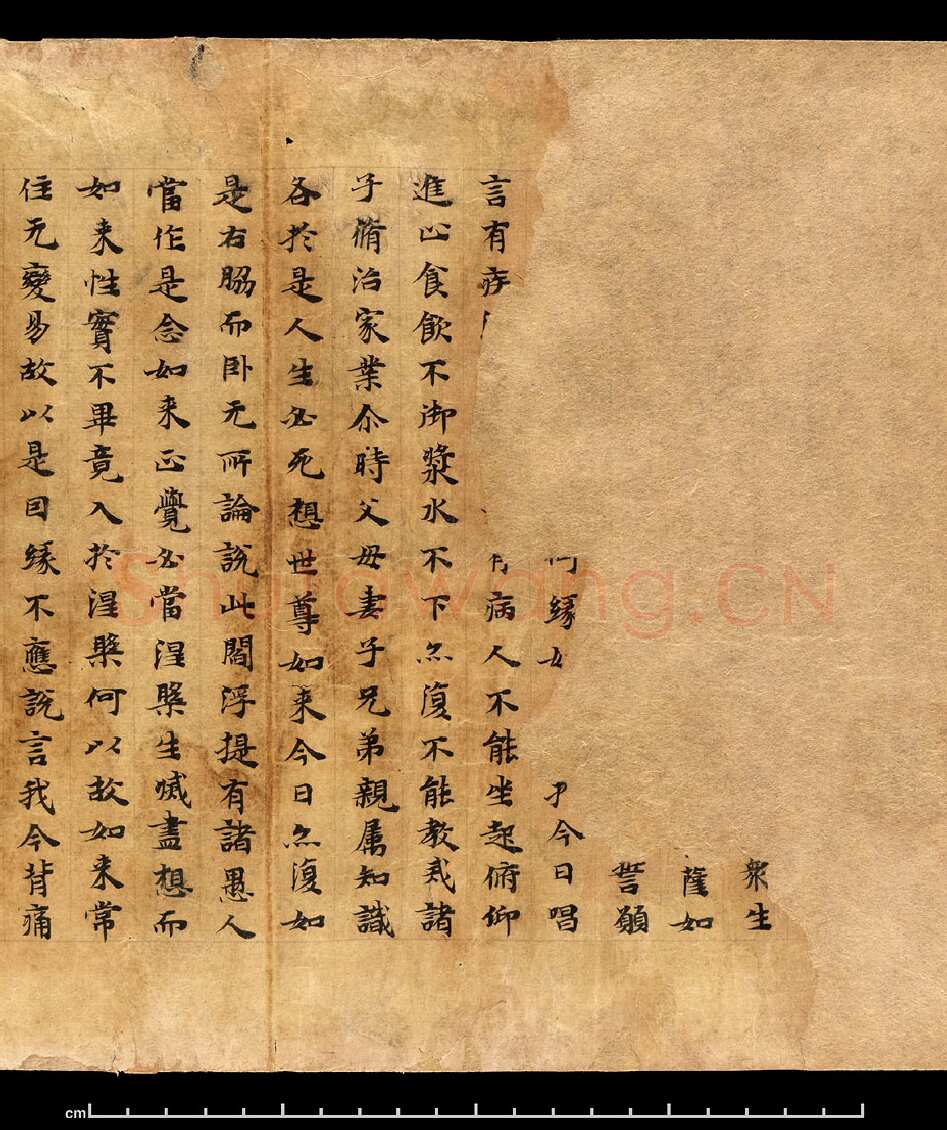 衆生
薩如
誓願
何緣 今日唱
言有疾 有病人不能坐起俯仰
進止食飲不御漿水不下亦復不能教戒諸
子脩治家業尒時父母妻子兄弟親属知識
各於是人生必死想世尊如来今日亦復如
是右脇而卧无所論說此閻浮提有諸愚人
當作是念如来正覺必當涅槃生滅盡想而
如来性實不畢竟入於涅槃何以故如来常
住无變易故以是因緣不應說言我今背痛
Shufawang.CN
cm